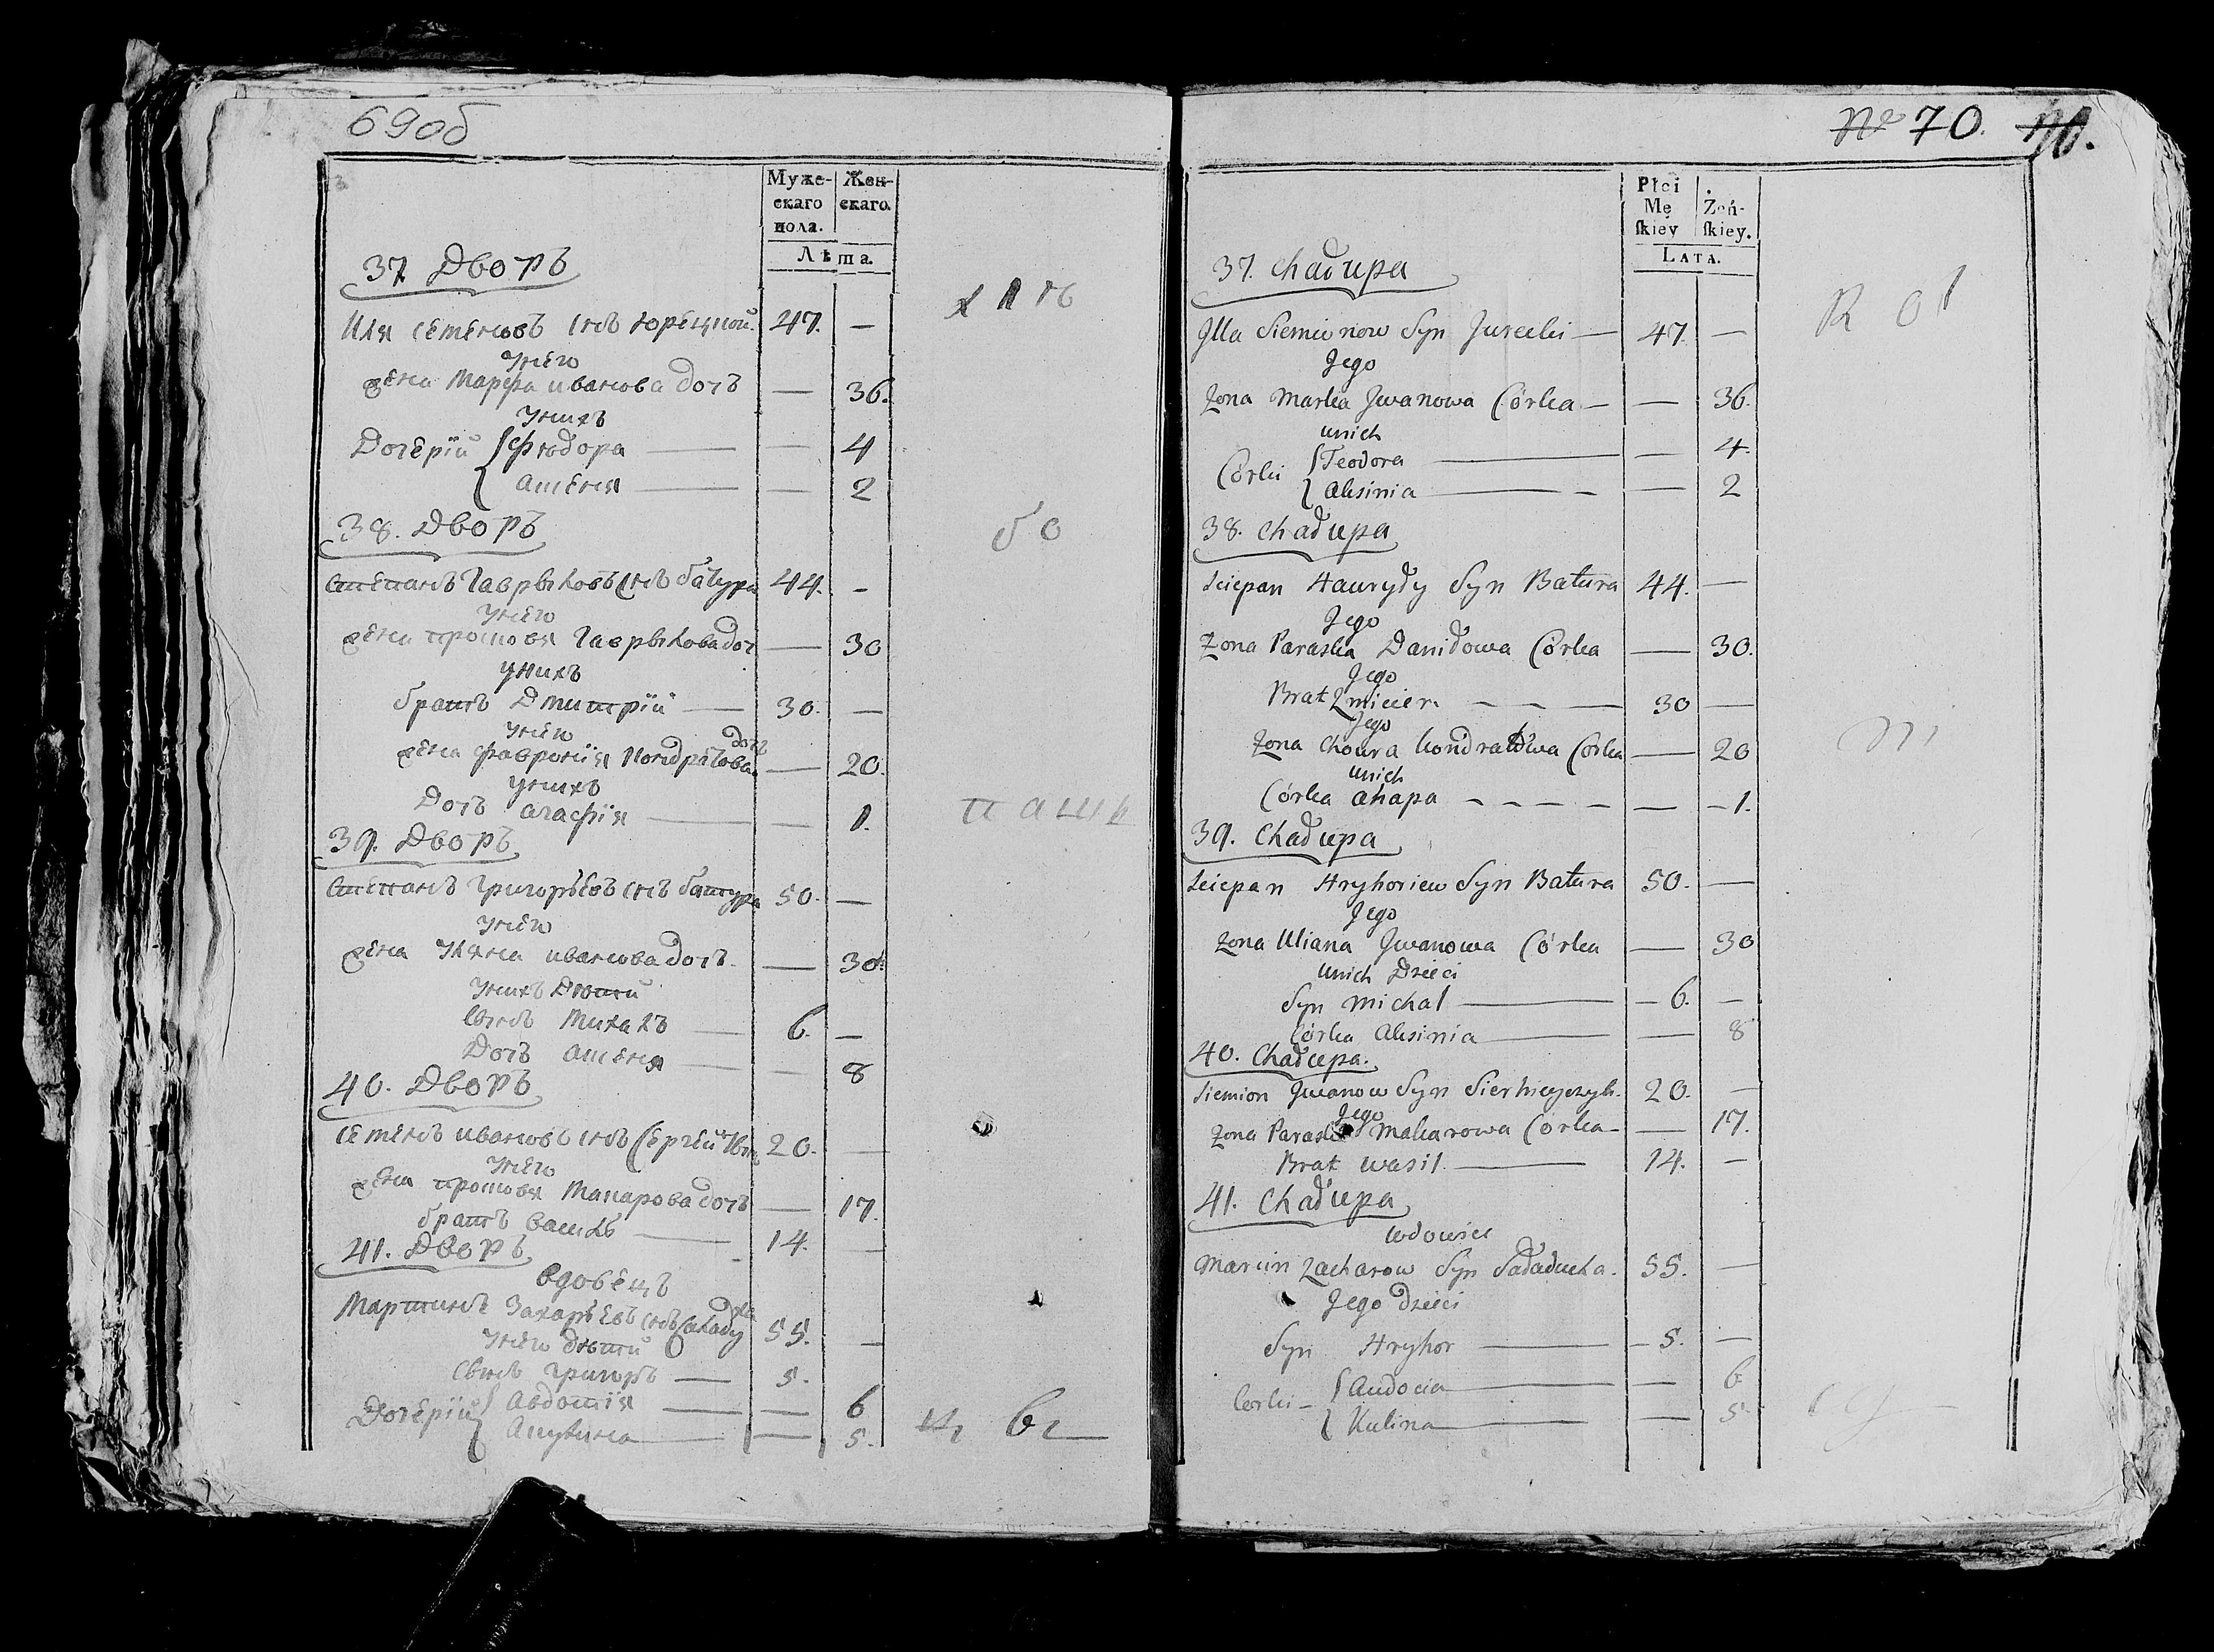 69об
Муже-
скаго
пола.
Жен-
скаго.
Лѣта.
37 Дворъ
Илія Семеновъ снъ Юрецкой. 47. —
У него
жена Марфа Иванова дочъ — 36.
У нихъ
Дочерій Федора — 4
Аксеня — 2
38. Дворъ
Степанъ Гаврыловъ снъ Батура 44. -
У него
жена Просковя Гаврылова доч — 30
У нихъ
братъ Дмитрій — 30. —
У него
жена Фавронія Кондратова дочъ — 20.
У нихъ
Дочъ Агафія — 1.
39. Дворъ
Степанъ Григорьевъ снъ Батура 50. —
У него
жена Уляна Иванова дочъ. — 30.
У нихъ Дѣти
Сынъ Михалъ — 6. —
Дочъ Аксеня — 8
40. Дворъ
Семенъ Ивановъ снъ 20. —
У него
жена Просковя Макарова дочъ — 17.
братъ Василь — 14. —
41. Дворъ
вдовецъ
Мартинъ Захарьевъ снъ 55. —
У него дѣти
Сынъ Григоръ — 5.
Дочерій Авдотія — 6
Акулина — 5.
№ 70.
Płci
Mę
ſkiey
Żeń-
ſkiey.
LATA.
37. Chałupa
Jlla Siemionow Syn Jurecki — 47. —
Jego
Zona Marka Jwanowa Córka — — 36.
unich
Córki Teodora — — 4.
Aksinia — — 2
38. Chałupa
Sciepan Hauryły Syn Batura 44. —
Jego
Zona Paraska Daniłowa Córka — 30.
Jego
Brat Zmicier. — 30 —
Jego
Zona Choura Kondratowa Córka — 20
unich
Córka Ahapa — — 1.
39. Chałupa
Sciepan Hryhoriew Syn Batura 50. —
Jego
Zona Uliana Jwanowa Córka — 30
unich Dzieci
Syn Michał — 6. —
Córka Aksinia — — 8
40. Chałupa.
Siemion Jwanow Syn Sierhiejczyk. 20. —
Jego
Zona Paraska Makarowa Córka — — 17.
Brat Wasil. — 14. —
41. Chałupa
Wdowiec
Marcin Zacharow Syn Saładucha. 55. —
Jego dzieci
Syn Hryhor — 5. —
Corki — Audocia — — 6
Kulina — — 5